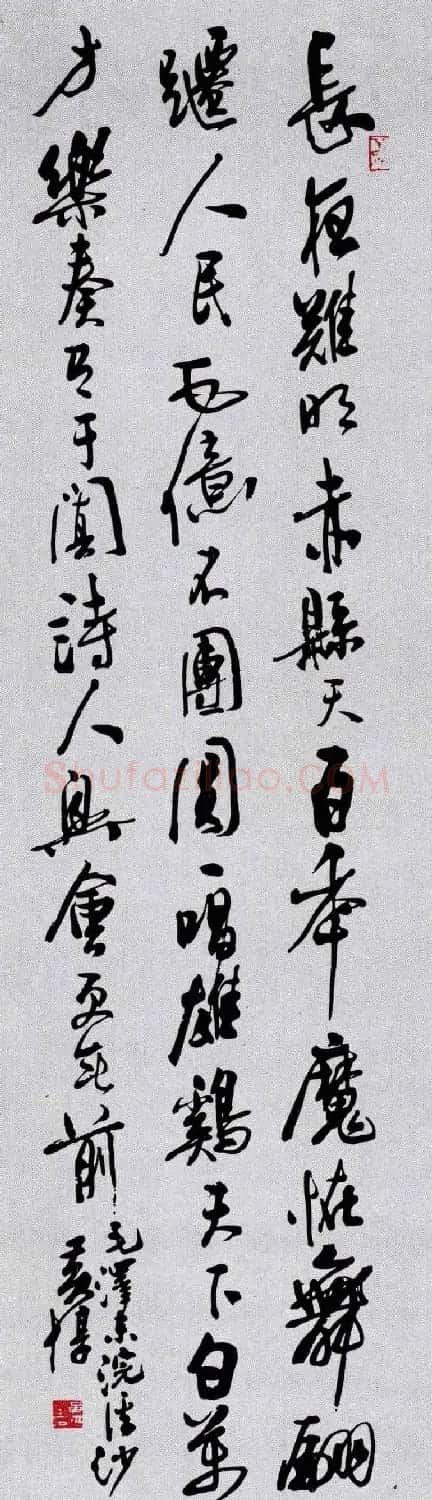 長夜難明赤縣天百年魔恠舞翩
躚人民五億不團圓一唱雄鷄天下白萬
方樂奏有于闐詩人興會更無前
毛澤東浣溪沙
黃惇
Shufaziliao.COM